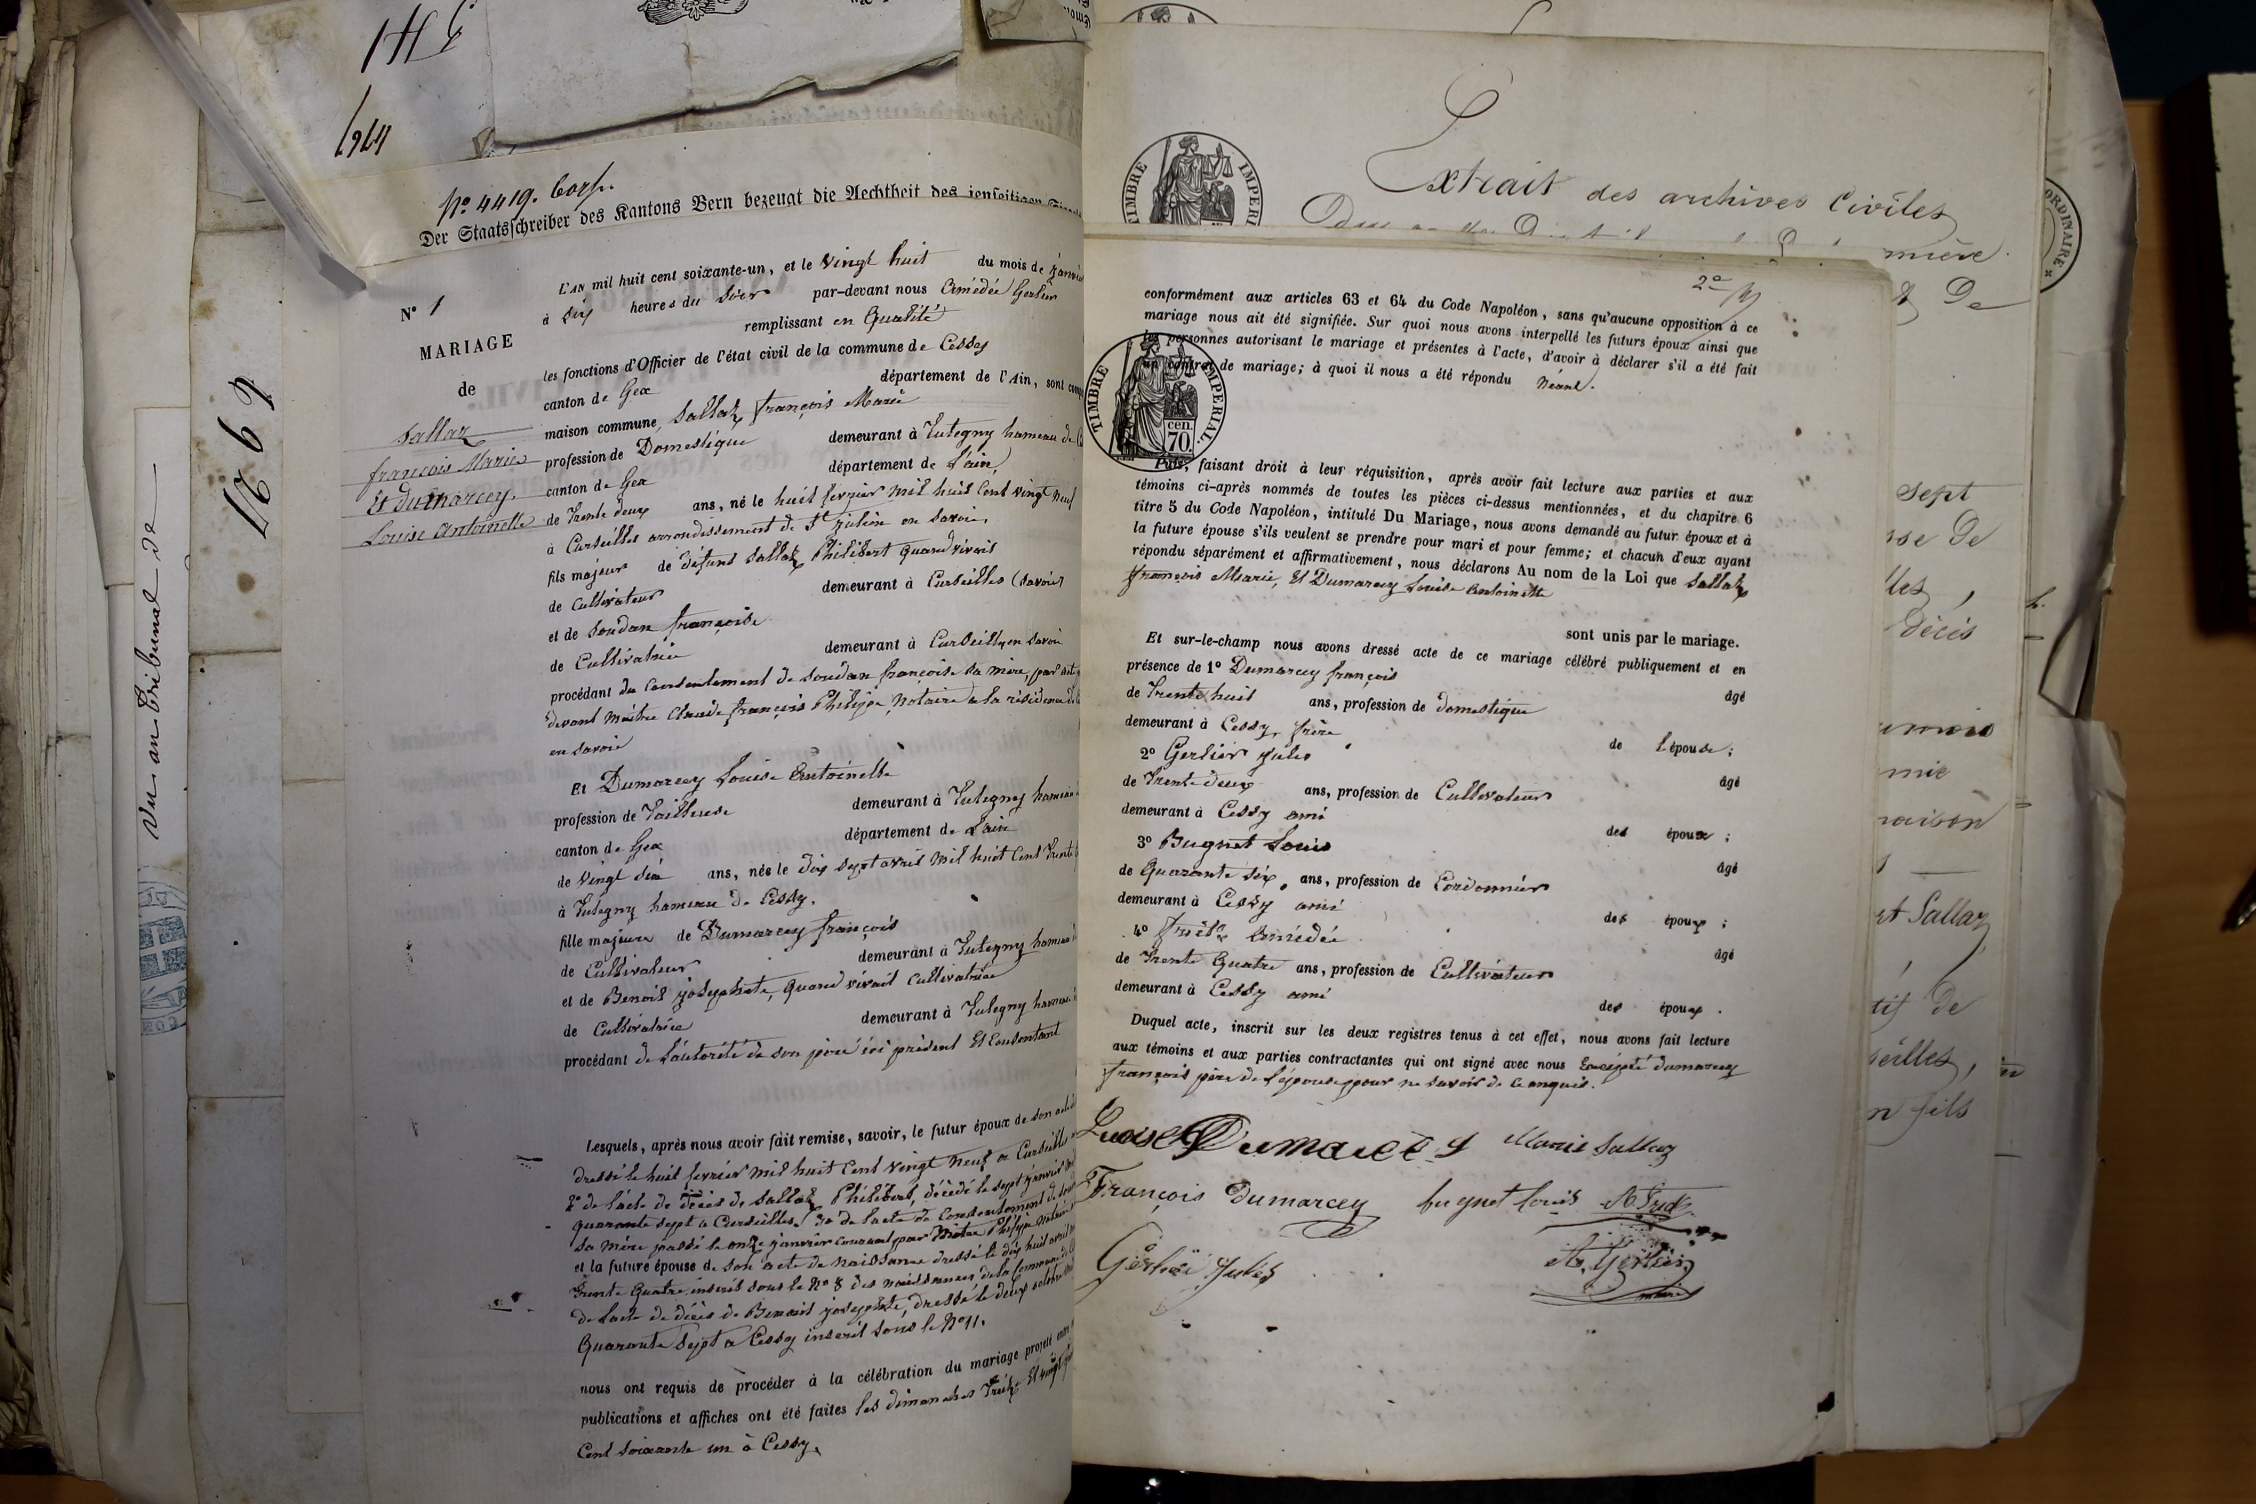 1964
No 4419. Corp.
Der Staatsschreiber des Kantons Bern bezeugt die Aechtheit des jenseitigen
Vu au Tribunal de
No 1
MARIAGE
de
Sallaz
françois Marie
Et Dumarcey
Louise Antoinette
L'AN mil huit cent soixante-un, et le Vingt huit du mois de Janvier
à Six heures du Soir par-devant nous Amédée Gerlier
remplissant en Qualité
les fonctions d'Officier de l'état civil de la commune de Cessy
canton de Gex département de l'Ain, sont
maison commune, Sallaz françois Marie
profession de Domestique demeurant à Tutegny hameau de
canton de Gex département de L'ain,
de Trente deux ans, né le huit fevrier Mil huit Cent Vingt Neuf
à Curseilles arrondissement de St Julien en Savoie,
fils majeur de défunt Sallaz Philibert quand vivait
de Cultivateur demeurant à Curseilles (Savoie)
et de Soudan françoise
de Cultivatrice demeurant à Curseilles en Savoie
procédant du Consentement de Soudan françoise Sa mère, par acte
devant Maitre Claude françois Philippe, Notaire à la résidence de
en Savoie
Et Dumarcey Louise Antoinette
profession de Tailleuse demeurant à Tutegny hameau
canton de Gex département de L'ain
de Vingt six ans, née le Dix Sept avril Mil huit Cent Trente
à Tutegny hameau de Cessy.
fille majeure de Dumarcey françois
de Cultivateur demeurant à Tutegny hameau
et de Benoit Josephte, quand vivait Cultivatrice
de Cultivatrice demeurant à Tutegny hameau
procédant de L'autorité de son père ici présent Et Consentant
Lesquels, après nous avoir fait remise, savoir, le futur époux de son acte
dressé le huit fevrier Mil huit Cent Vingt Neuf à Curseilles
2o de L'acte de Décès de Sallaz Philibert, décédé le Sept Janvier
quarante Sept à Curseilles. 3o de L'acte de Consentement de
Sa Mère passé le onze Janvier courant par Maitre Philippe Notaire
et la future épouse de Son acte de Naissance dressé le dix huit avril
Trente Quatre inscrit sous le No 8 des naissances de la Commune de
De L'acte de décès de Benoit Josephte, dressé le deux octobre
Quarante Sept à Cessy inscrit sous le No 11.
nous ont requis de procéder à la célébration du mariage projeté entre
publications et affiches ont été faites les dimanches Treize Et Vingt
Cent Soixante un à Cessy.
Extrait des archives Civiles
TIMBRE IMPERIAL
mière
De
ORDINAIRE
2e
conformément aux articles 63 et 64 du Code Napoléon, sans qu'aucune opposition à ce
mariage nous ait été signifiée. Sur quoi nous avons interpellé les futurs époux ainsi que
les personnes autorisant le mariage et présentes à l'acte, d'avoir à déclarer s'il a été fait
un contrat de mariage; à quoi il nous a été répondu Néant.
TIMBRE IMPERIAL.
cen.
70.
Puis, faisant droit à leur réquisition, après avoir fait lecture aux parties et aux
témoins ci-après nommés de toutes les pièces ci-dessus mentionnées, et du chapitre 6
titre 5 du Code Napoléon, intitulé Du Mariage, nous avons demandé au futur époux et à
la future épouse s'ils veulent se prendre pour mari et pour femme; et chacun d'eux ayant
répondu séparément et affirmativement, nous déclarons Au nom de la Loi que Sallaz
françois Marie, Et Dumarcey Louise Antoinette
sont unis par le mariage.
Et sur-le-champ nous avons dressé acte de ce mariage célébré publiquement et en
présence de 1o Dumarcey françois
âgé
de Trente huit ans, profession de domestique
demeurant à Cessy, frère
de L'épouse;
2o Gerlier Jules
âgé
de Trente deux ans, profession de Cultivateur
demeurant à Cessy ami
des époux;
3o Bugnet Louis
âgé
de Quarante six ans, profession de Cordonnier
demeurant à Cessy ami
des époux;
4o Amédée
âgé
de Trente Quatre ans, profession de Cultivateur
demeurant à Cessy ami
des époux.
Duquel acte, inscrit sur les deux registres tenus à cet effet, nous avons fait lecture
aux témoins et aux parties contractantes qui ont signé avec nous Excépté dumarcey
françois père de L'épouse pour ne savoir de ce enquis.
Louise Dumarcey Marie Sallaz
François Dumarcey bugnet louis
Gerlier Jules A. Gerlier
maire
sept
De
décès
maison
et Sallaz
De
fils